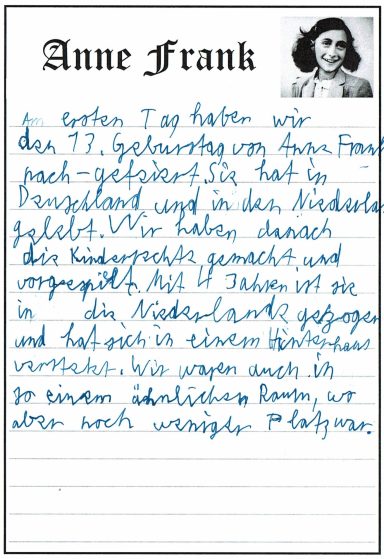 Anne Frank
Am ersten Tag haben wir
den 13. Geburstag von Anne Frank
nach-gefeiert. Sie hat in
Deuschland und in den Niederlan
gelebt. Wir haben danach
die Kinderrechte gemacht und
vorgespielt. Mit 4 Jahren ist sie
in die Niederlande gezogen
und hat sich in einem Hinterhaus
versteckt. Wir waren auch in
so einem ähnlichen Raum, wo
aber noch weniger Platz war.